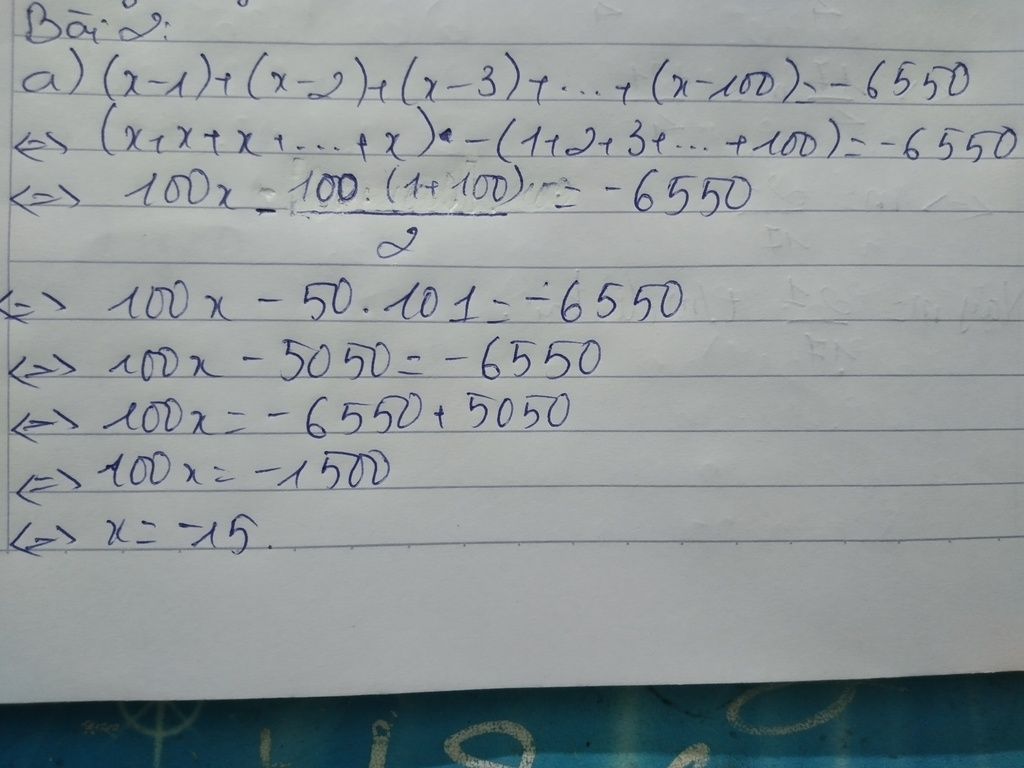 Bài 2:
a) (x-1)+(x-2)+(x-3)+...+(x-100)=-6550
<=> (x+x+x+...+x) - (1+2+3+...+100)=-6550
<=> 100x - 100.(1+100) = -6550
2
<=> 100x - 50.101=-6550
<=> 100x - 5050=-6550
<=> 100x=-6550+5050
<=> 100x=-1500
<=> x=-15.